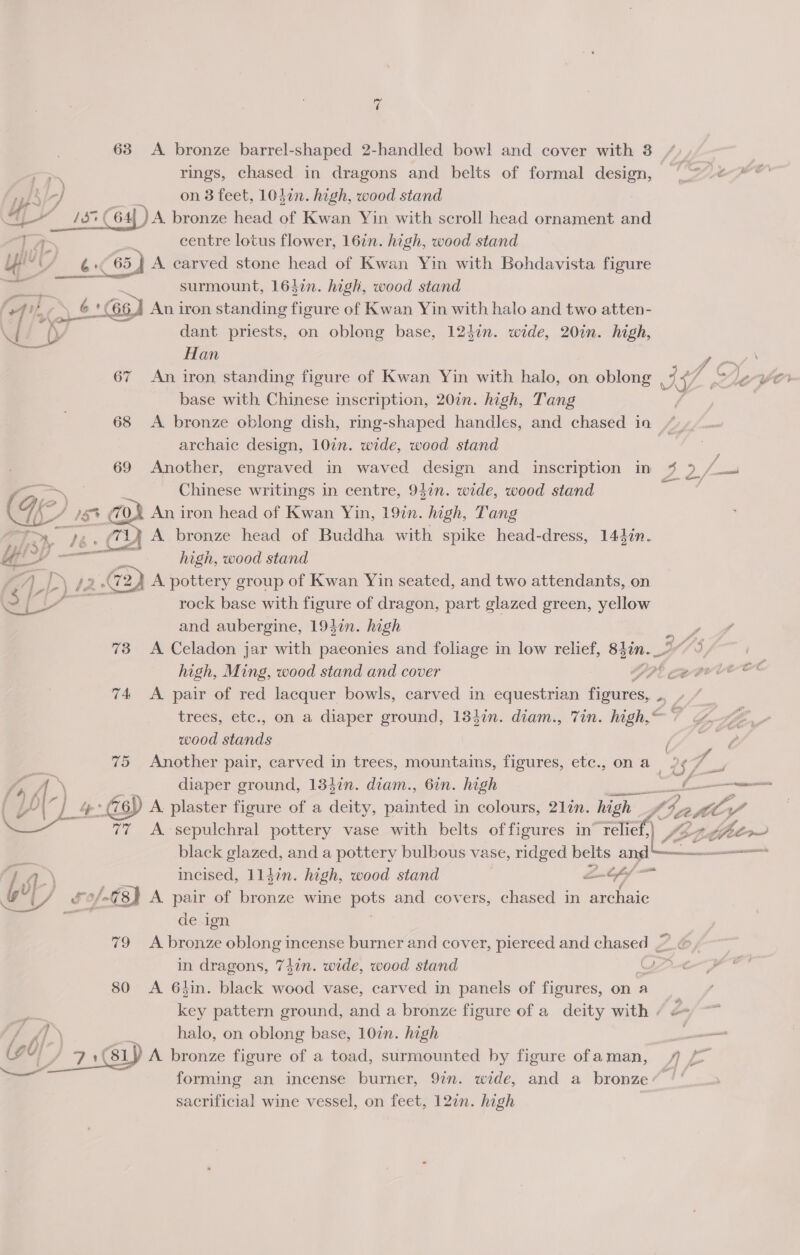 7
63 A bronze barrel-shaped 2-handled bowl and cover with 3
rings, chased in dragons and belts of formal design,
on 3 feet, 10½in. high, wood stand
64 A bronze head of Kwan Yin with scroll head ornament and
centre lotus flower, 16in. high, wood stand
65 A carved stone head of Kwan Yin with Bohdavista figure
surmount, 16½in. high, wood stand
66 An iron standing figure of Kwan Yin with halo and two atten-
dant priests, on oblong base, 12½in. wide, 20in. high,
Han
67 An iron standing figure of Kwan Yin with halo, on oblong
base with Chinese inscription, 20in. high, Tang
68 A bronze oblong dish, ring-shaped handles, and chased in
archaic design, 10in. wide, wood stand
69 Another, engraved in waved design and inscription in
Chinese writings in centre, 9½in. wide, wood stand
70 An iron head of Kwan Yin, 19in. high, Tang
71 A bronze head of Buddha with spike head-dress, 14½in.
high, wood stand
72 A pottery group of Kwan Yin seated, and two attendants, on
rock base with figure of dragon, part glazed green, yellow
and aubergine, 19½in. high
73 A Celadon jar with paeonies and foliage in low relief, 8½in.
high, Ming, wood stand and cover
74 A pair of red lacquer bowls, carved in equestrian figures,
trees, etc., on a diaper ground, 13½in. diam., 7in. high,
wood stands
75 Another pair, carved in trees, mountains, figures, etc., on a
diaper ground, 13½in. diam., 6in. high
76 A plaster figure of a deity, painted in colours, 21in. high
77 A sepulchral pottery vase with belts of figures in relief,
black glazed, and a pottery bulbous vase, ridged belts and
incised, 11½in. high, wood stand
78 A pair of bronze wine pots and covers, chased in archaic
de ign
79 A bronze oblong incense burner and cover, pierced and chased
in dragons, 7½in. wide, wood stand
80 A 6½in. black wood vase, carved in panels of figures, on a
key pattern ground, and a bronze figure of a deity with
halo, on oblong base, 10in. high
81 A bronze figure of a toad, surmounted by figure of a man,
forming an incense burner, 9in. wide, and a bronze
sacrificial wine vessel, on feet, 12in. high